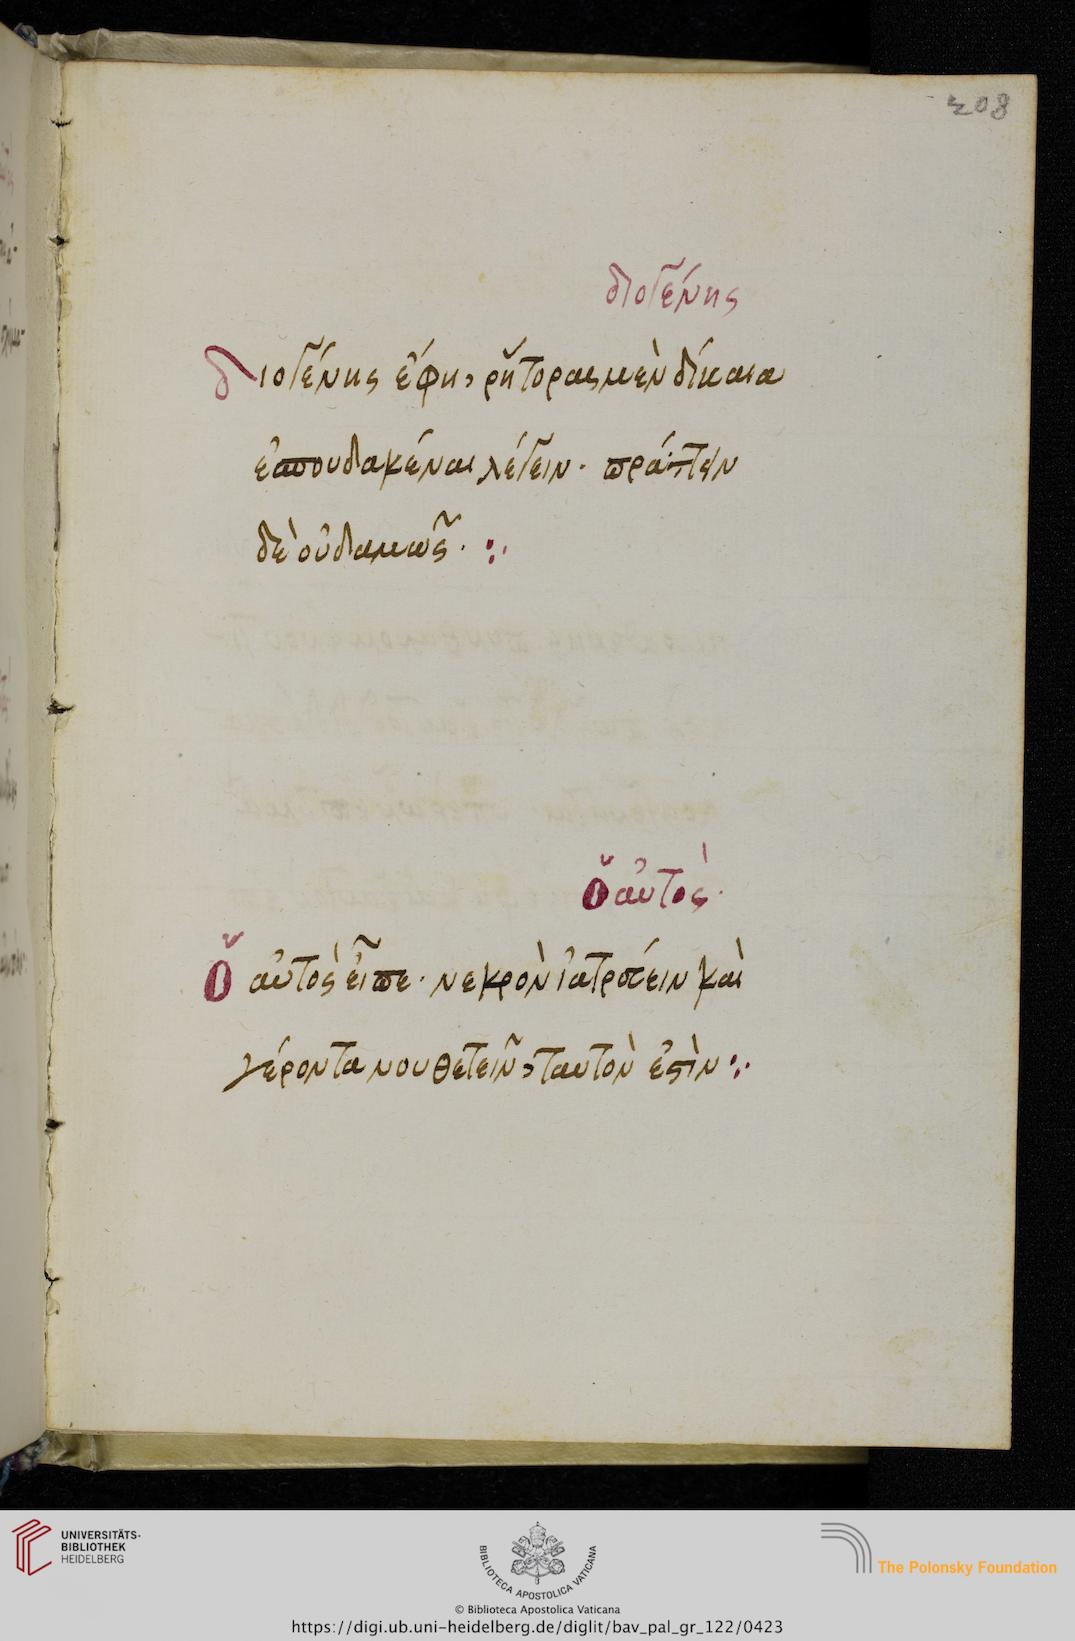 208
διογένης
διογένης ἔφη, ῥήτορας μὲν δίκαια
ἐσπουδακέναι λέγειν· πράττειν
δὲ οὐδαμῶς·
Ὁ αὐτὸς·
Ὁ αὐτὸς εἶπε· νεκρὸν ἰατρεύειν καὶ
γέροντα νουθετεῖν, ταυτὸν ἐστὶν
UNIVERSITÄTS-
BIBLIOTHEK
HEIDELBERG
BIBLIOTECA APOSTOLICA VATICANA
The Polonsky Foundation
© Biblioteca Apostolica Vaticana
https://digi.ub.uni-heidelberg.de/diglit/bav_pal_gr_122/0423